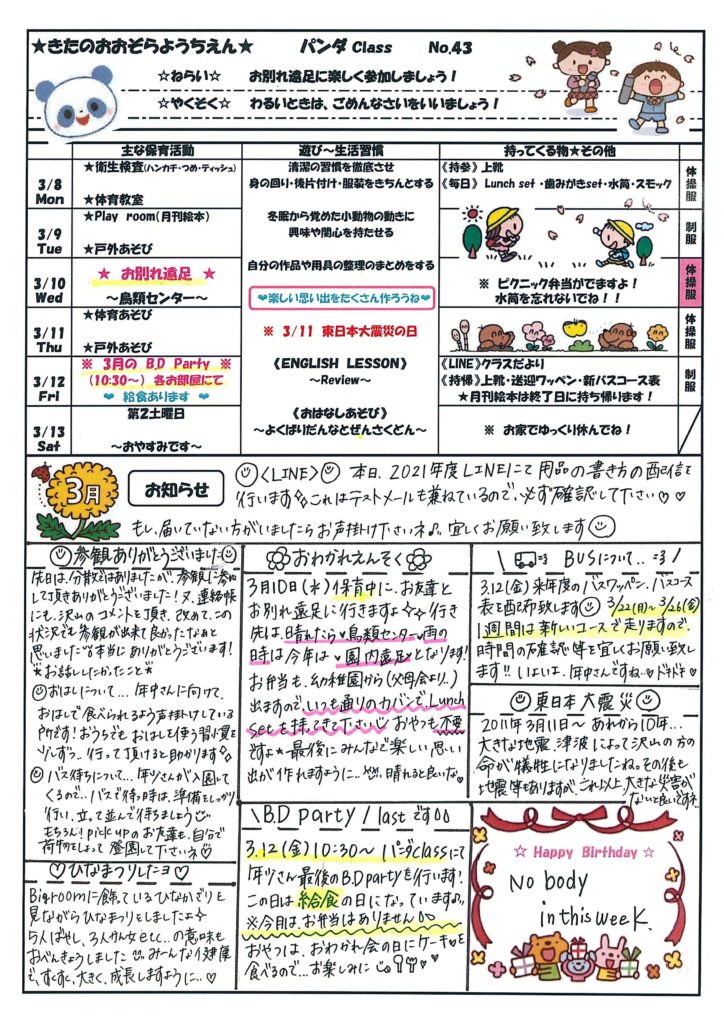 ★きたのおおぞらようちえん★ パンダ Class No.43
☆ねらい☆ お別れ遠足に楽しく参加しましょう！
☆やくそく☆ わるいときは、ごめんなさいをいいましょう！
主な保育活動 遊び～生活習慣 持ってくる物★その他
3/8 Mon
★衛生検査(ハンカチ・つめ・ティッシュ)
★体育教室
清潔の習慣を徹底させ
身の回り・後片付け・服装をきちんとする
《持参》上靴
《毎日》 Lunch set ・歯みがきset・水筒・スモック
体操服
3/9 Tue
★Play room(月刊絵本)
★戸外あそび
冬眠から覚めた小動物の動きに
興味や関心を持たせる
制服
3/10 Wed
★ お別れ遠足 ★
～鳥類センター～
自分の作品や用具の整理のまとめをする
❤楽しい思い出をたくさん作ろうね❤
※ ピクニック弁当がでますよ！
水筒を忘れないでね！！
体操服
3/11 Thu
★体育あそび
★戸外あそび
※ 3/11 東日本大震災の日
体操服
3/12 Fri
※ 3月の B,D Party ※
(10:30～) 各お部屋にて
❤ 給食あります ❤
《ENGLISH LESSON》
～Review～
《LINE》クラスだより
《持帰》上靴・送迎ワッペン・新バスコース表
★月刊絵本は終了日に持ち帰ります！
制服
3/13 Sat
第2土曜日
～おやすみです～
《おはなしあそび》
～よくばりだんなとぜんさくどん～
※ お家でゆっくり休んでね！
3月
お知らせ
〈LINE〉 本日、2021年度LINEにて用品の書き方の配信を
行います。これはテストメールも兼ねているので、必ず確認して下さい♡♡
もし、届いていない方がいましたらお声掛け下さいネ♪。宜しくお願い致します
参観ありがとうございました
先日は、分散ではありましたが、参観に参加
して頂きありがとうございました！又、連絡帳
にも、沢山のコメントを頂き、改めて、この
状況でも参観が出来て良かったなぁと
思いました。本当にありがとうございます！
★お話ししたかったこと★
おはしについて...年中さんに向けて、
おはしで食べられるよう声掛けしている
所です！おうちでもおはしを使う習慣を
少しずつ..行って頂けると助かります
バス待ちについて...年少さんが入園して
くるので...バスで待つ時は、準備をしっかり
行い、立って並んで待ちましょう
もちろん！pick upのお友達も、自分で
荷物をもって登園して下さいネ♡
♡ひなまつりしたヨ♡
Big roomに飾ているひなかざりを
見ながらひなまつりをしましたよ
5人ばやし、3人かん女etc...の意味も
おべんきょうしました みーんな健康
で、すくすく、大きく、成長しますように...♡
おわかれえんそく
3月10日(水)保育中に、お友達と
お別れ遠足に行きますよ 行き
先は、晴れたら♥鳥類センター♥雨の
時は今年は♥園内遠足となります！
お弁当も、幼稚園から(父母会より..)
出ますので、いつも通りのカバンでLunch
setを持ってきて下さい おやつも不要
ですよ★最後にみんなで楽しい思い
出が作れますように... 晴れると良いな。
\B.D party/ lastです
3.12(金)10:30～ パンダclassにて
年少さん最後のB.D partyを行います！
この日は給食の日になっています♪
※今月は、お弁当はありません
おやつは、おわかれ会の日にケーキ♥を
食べるので...お楽しみに
\ BUSについて.. /
3.12(金)来年度のバスワッペン、バスコース
表を配布致します 3/22(月)～3/26(金)
1週間は新しいコースで走りますので、
時間の確認等を宜しくお願い致し
ます!! いよいよ、年中さんですね..♥ドキドキ♥
東日本大震災
2011年3月11日～あれから10年...
大きな地震、津波によって沢山の方の
命が犠牲になりましたね。その後も
地震等もありますが、これ以上、大きな災害が
ないと良いですネ
☆ Happy Birthday ☆
No body
in this week.